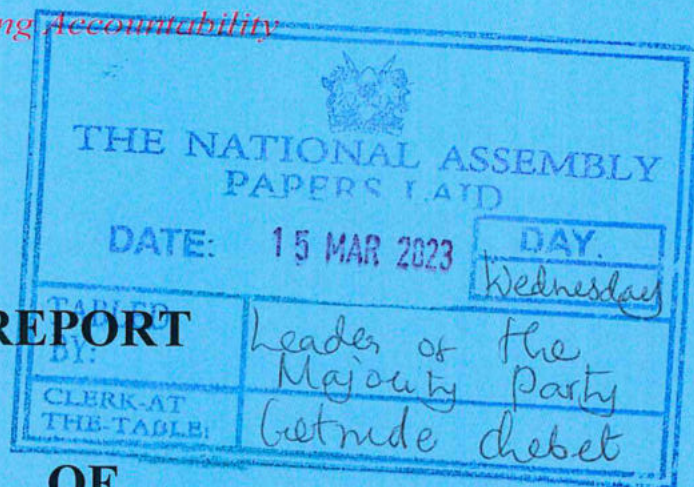 ng Accountability
THE NATIONAL ASSEMBLY
PAPERS LAID
DATE: 15 MAR 2023 DAY.
Wednesday
TABLED
BY: Leader of the
Majority Party
CLERK-AT
THE-TABLE: Getrude chebet
REPORT
OF